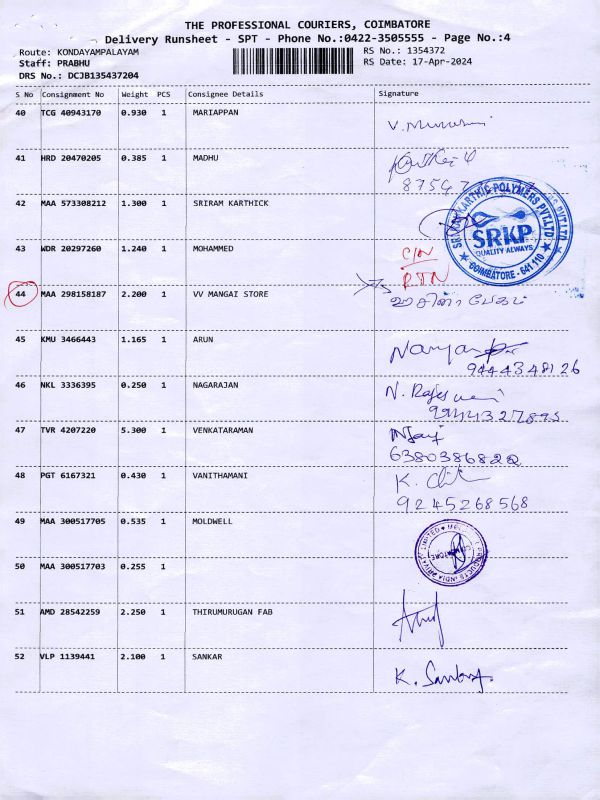 THE PROFESSIONAL COURIERS, COIMBATORE
Delivery Runsheet - SPT - Phone No.:0422-3505555 - Page No.:4
Route: KONDAYAMPALAYAM RS No.: 1354372
Staff: PRABHU RS Date: 17-Apr-2024
DRS No.: DCJB135437204
S No Consignment No Weight PCS Consignee Details Signature
40 TCG 40943170 0.930 1 MARIAPPAN
41 HRD 20470205 0.385 1 MADHU
42 MAA 573308212 1.300 1 SRIRAM KARTHICK
SRIRAM KARTHIC POLYMERS PVT.LTD
SRKP
QUALITY ALWAYS
COIMBATORE - 641 110
43 WDR 20297260 1.240 1 MOHAMMED C/N
RTN
44 MAA 298158187 2.200 1 VV MANGAI STORE
45 KMU 3466443 1.165 1 ARUN
9444348126
46 NKL 3336395 0.250 1 NAGARAJAN N.
47 TVR 4207220 5.300 1 VENKATARAMAN
6380386822
48 PGT 6167321 0.430 1 VANITHAMANI K.
9245268568
49 MAA 300517705 0.535 1 MOLDWELL
50 MAA 300517703 0.255 1
51 AMD 28542259 2.250 1 THIRUMURUGAN FAB
52 VLP 1139441 2.100 1 SANKAR K. Sankar